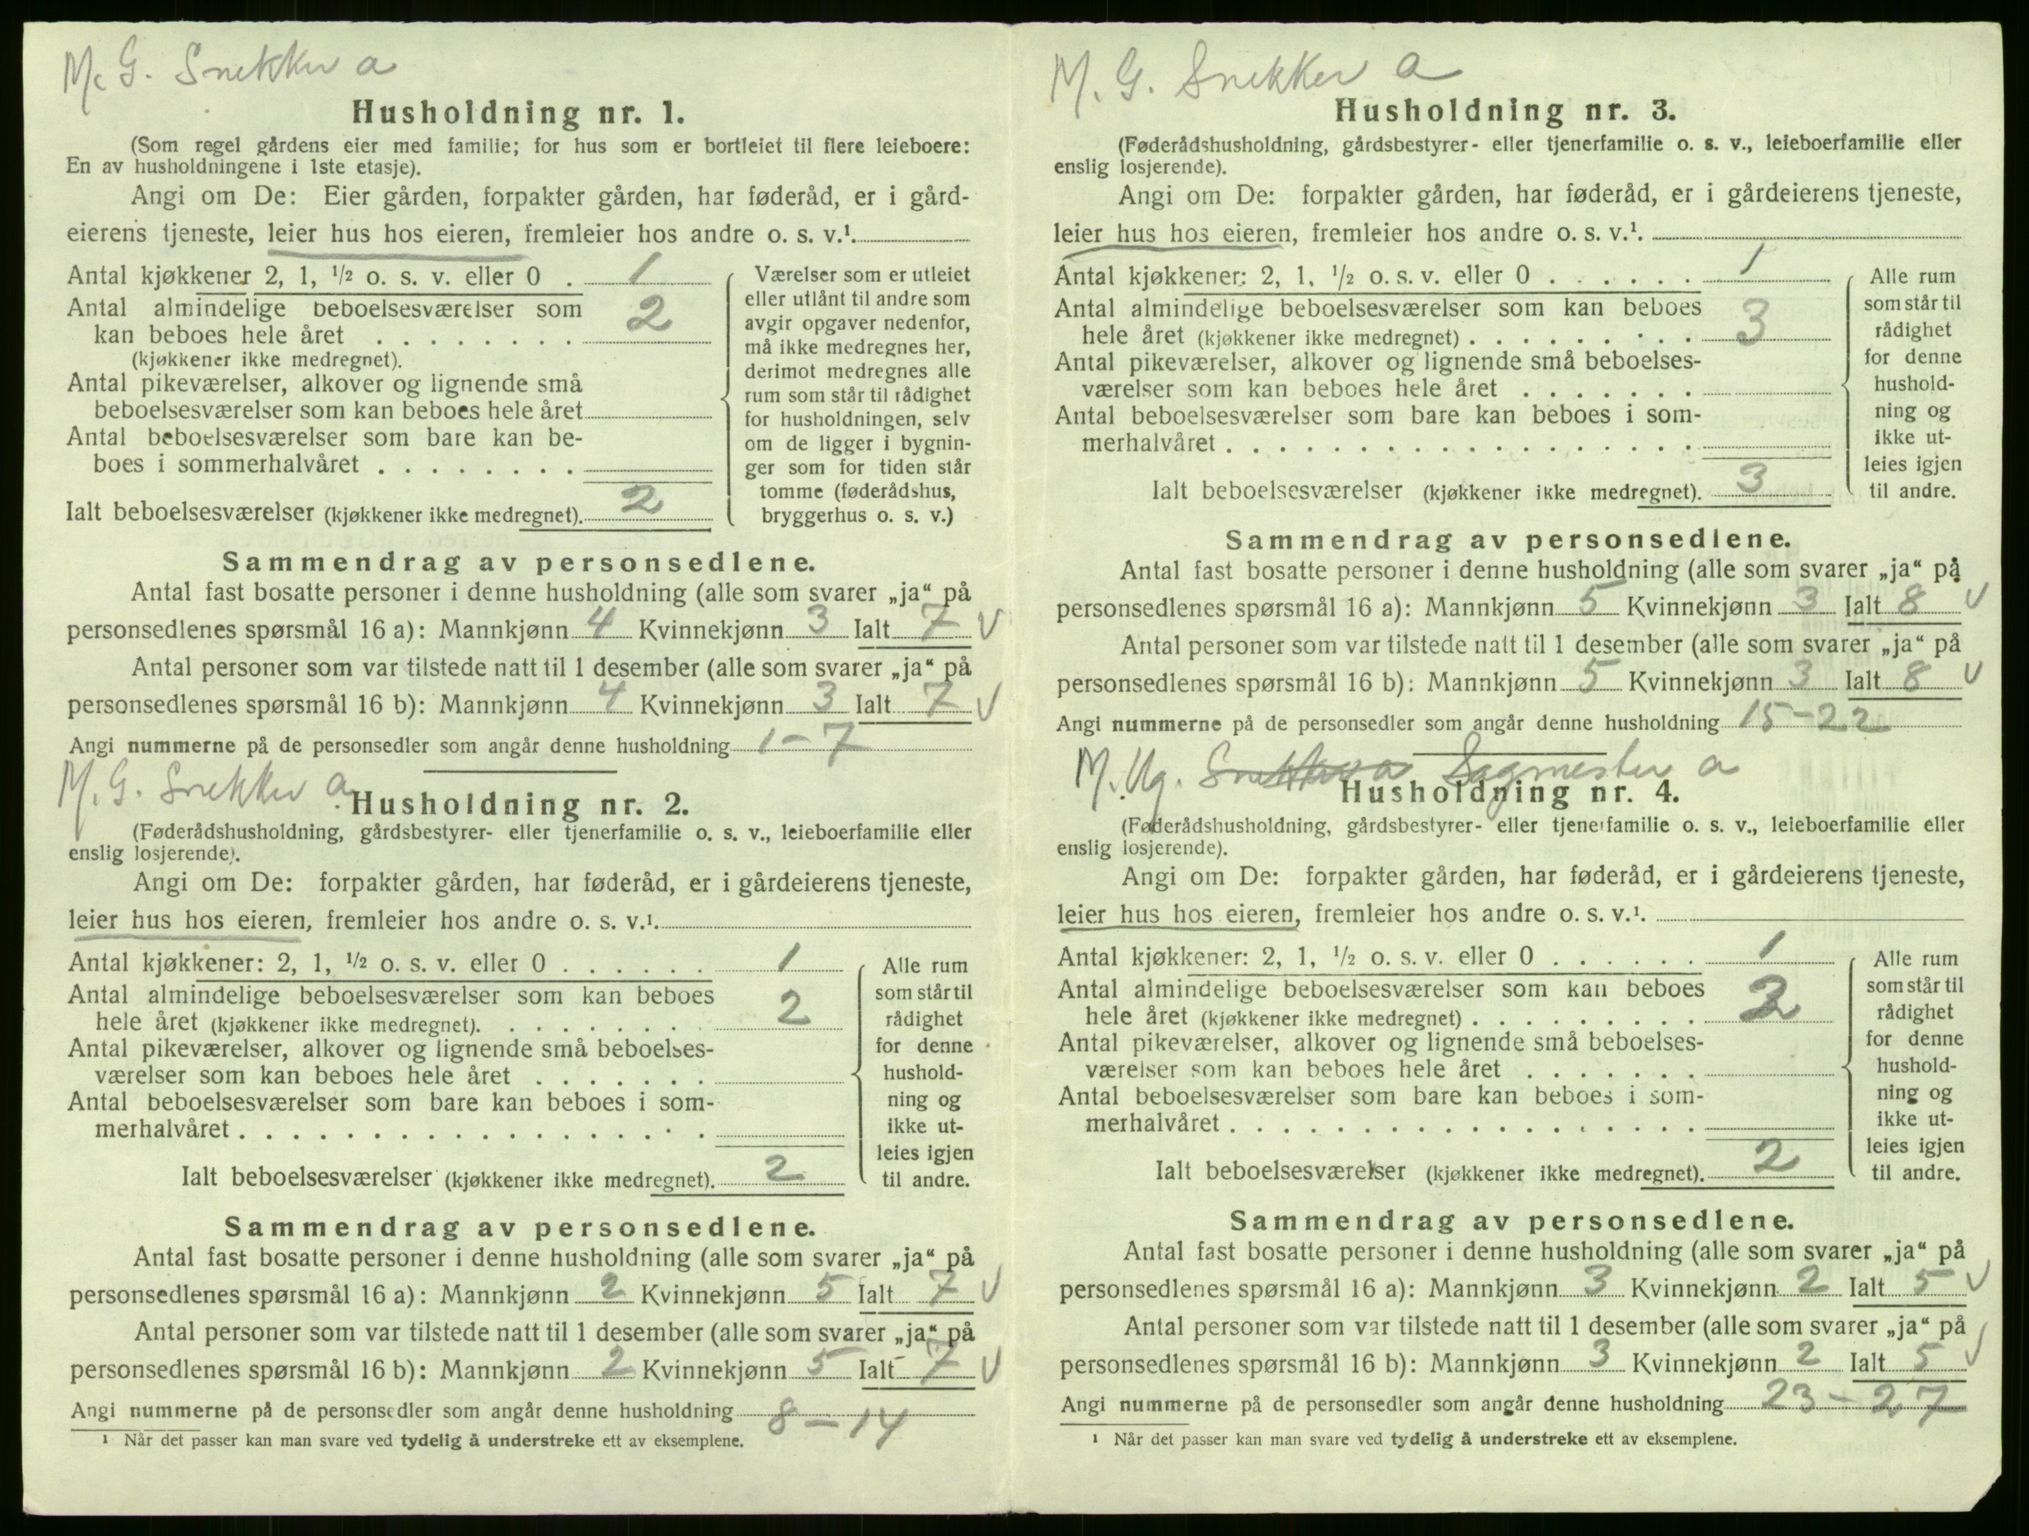 M. G. Snekker a
Husholdning nr. 1.
(Som regel gårdens eier med familie; for hus som er bortleiet til flere leieboere:
En av husholdningene i 1ste etasje).
Angi om De: Eier gården, forpakter gården, har føderåd, er i gård-
eierens tjeneste, leier hus hos eieren, fremleier hos andre o. s. v.¹.
Antal kjøkkener 2, 1, ½ o. s. v. eller 0 . 1
Antal almindelige beboelsesværelser som
kan beboes hele året . . . . . . . . . 2
(kjøkkener ikke medregnet).
Antal pikeværelser, alkover og lignende små
beboelsesværelser som kan beboes hele året
Antal beboelsesværelser som bare kan be-
boes i sommerhalvåret . . . . . . . .
Ialt beboelsesværelser (kjøkkener ikke medregnet). 2
Værelser som er utleiet
eller utlånt til andre som
avgir opgaver nedenfor,
må ikke medregnes her,
derimot medregnes alle
rum som står til rådighet
for husholdningen, selv
om de ligger i bygnin-
ger som for tiden står
tomme (føderådshus,
bryggerhus o. s. v.)
Sammendrag av personsedlene.
Antal fast bosatte personer i denne husholdning (alle som svarer „ja“ på
personsedlenes spørsmål 16 a): Mannkjønn 4 Kvinnekjønn 3 Ialt 7 V
Antal personer som var tilstede natt til 1 desember (alle som svarer „ja“ på
personsedlenes spørsmål 16 b): Mannkjønn 4 Kvinnekjønn 3 Ialt 7 V
Angi nummerne på de personsedler som angår denne husholdning 1-7
M. G. Snekker a
Husholdning nr. 2.
(Føderådshusholdning, gårdsbestyrer- eller tjenerfamilie o. s. v., leieboerfamilie eller
enslig losjerende).
Angi om De: forpakter gården, har føderåd, er i gårdeierens tjeneste,
leier hus hos eieren, fremleier hos andre o. s. v.¹.
Antal kjøkkener: 2, 1, ½ o. s. v. eller 0 . . . . . . 1
Antal almindelige beboelsesværelser som kan beboes
hele året (kjøkkener ikke medregnet). . . . . . . . . 2
Antal pikeværelser, alkover og lignende små beboelses-
værelser som kan beboes hele året . . . . . . .
Antal beboelsesværelser som bare kan beboes i som-
merhalvåret . . . . . . . . . . . . . . . . . .
Ialt beboelsesværelser (kjøkkener ikke medregnet). 2
Alle rum
som står til
rådighet
for denne
hushold-
ning og
ikke ut-
leies igjen
til andre.
Sammendrag av personsedlene.
Antal fast bosatte personer i denne husholdning (alle som svarer „ja“ på
personsedlenes spørsmål 16 a): Mannkjønn 2 Kvinnekjønn 5 Ialt 7 V
Antal personer som var tilstede natt til 1 desember (alle som svarer „ja“ på
personsedlenes spørsmål 16 b): Mannkjønn 2 Kvinnekjønn 5 Ialt 7 V
Angi nummerne på de personsedler som angår denne husholdning 8-14
¹ Når det passer kan man svare ved tydelig å understreke ett av eksemplene.
M. G. Snekker a
Husholdning nr. 3.
(Føderådshusholdning, gårdsbestyrer- eller tjenerfamilie o. s. v., leieboerfamilie eller
enslig losjerende).
Angi om De: forpakter gården, har føderåd, er i gårdeierens tjeneste,
leier hus hos eieren, fremleier hos andre o. s. v.¹.
Antal kjøkkener: 2, 1, ½ o. s. v. eller 0 . . . . . . 1
Antal almindelige beboelsesværelser som kan beboes
hele året (kjøkkener ikke medregnet) . . . . . . . . . 3
Antal pikeværelser, alkover og lignende små beboelses-
værelser som kan beboes hele året . . . . . . .
Antal beboelsesværelser som bare kan beboes i som-
merhalvåret . . . . . . . . . . . . . . . . . .
Ialt beboelsesværelser (kjøkkener ikke medregnet). 3
Alle rum
som står til
rådighet
for denne
hushold-
ning og
ikke ut-
leies igjen
til andre.
Sammendrag av personsedlene.
Antal fast bosatte personer i denne husholdning (alle som svarer „ja“ på
personsedlenes spørsmål 16 a): Mannkjønn 5 Kvinnekjønn 3 Ialt 8 V
Antal personer som var tilstede natt til 1 desember (alle som svarer „ja“ på
personsedlenes spørsmål 16 b): Mannkjønn 5 Kvinnekjønn 3 Ialt 8 V
Angi nummerne på de personsedler som angår denne husholdning 15-22
M. Ug. Snekker a Sagmester a
Husholdning nr. 4.
(Føderådshusholdning, gårdsbestyrer- eller tjenerfamilie o. s. v., leieboerfamilie eller
enslig losjerende).
Angi om De: forpakter gården, har føderåd, er i gårdeierens tjeneste,
leier hus hos eieren, fremleier hos andre o. s. v.¹.
Antal kjøkkener: 2, 1, ½ o. s. v. eller 0 . . . . . . 1
Antal almindelige beboelsesværelser som kan beboes
hele året (kjøkkener ikke medregnet) . . . . . . . . . 2
Antal pikeværelser, alkover og lignende små beboelses-
værelser som kan beboes hele året . . . . . . .
Antal beboelsesværelser som bare kan beboes i som-
merhalvåret . . . . . . . . . . . . . . . . . .
Ialt beboelsesværelser (kjøkkener ikke medregnet). 2
Alle rum
som står til
rådighet
for denne
hushold-
ning og
ikke ut-
leies igjen
til andre.
Sammendrag av personsedlene.
Antal fast bosatte personer i denne husholdning (alle som svarer „ja“ på
personsedlenes spørsmål 16 a): Mannkjønn 3 Kvinnekjønn 2 Ialt 5 V
Antal personer som var tilstede natt til 1 desember (alle som svarer „ja“ på
personsedlenes spørsmål 16 b): Mannkjønn 3 Kvinnekjønn 2 Ialt 5 V
Angi nummerne på de personsedler som angår denne husholdning 23-27
¹ Når det passer kan man svare ved tydelig å understreke ett av eksemplene.